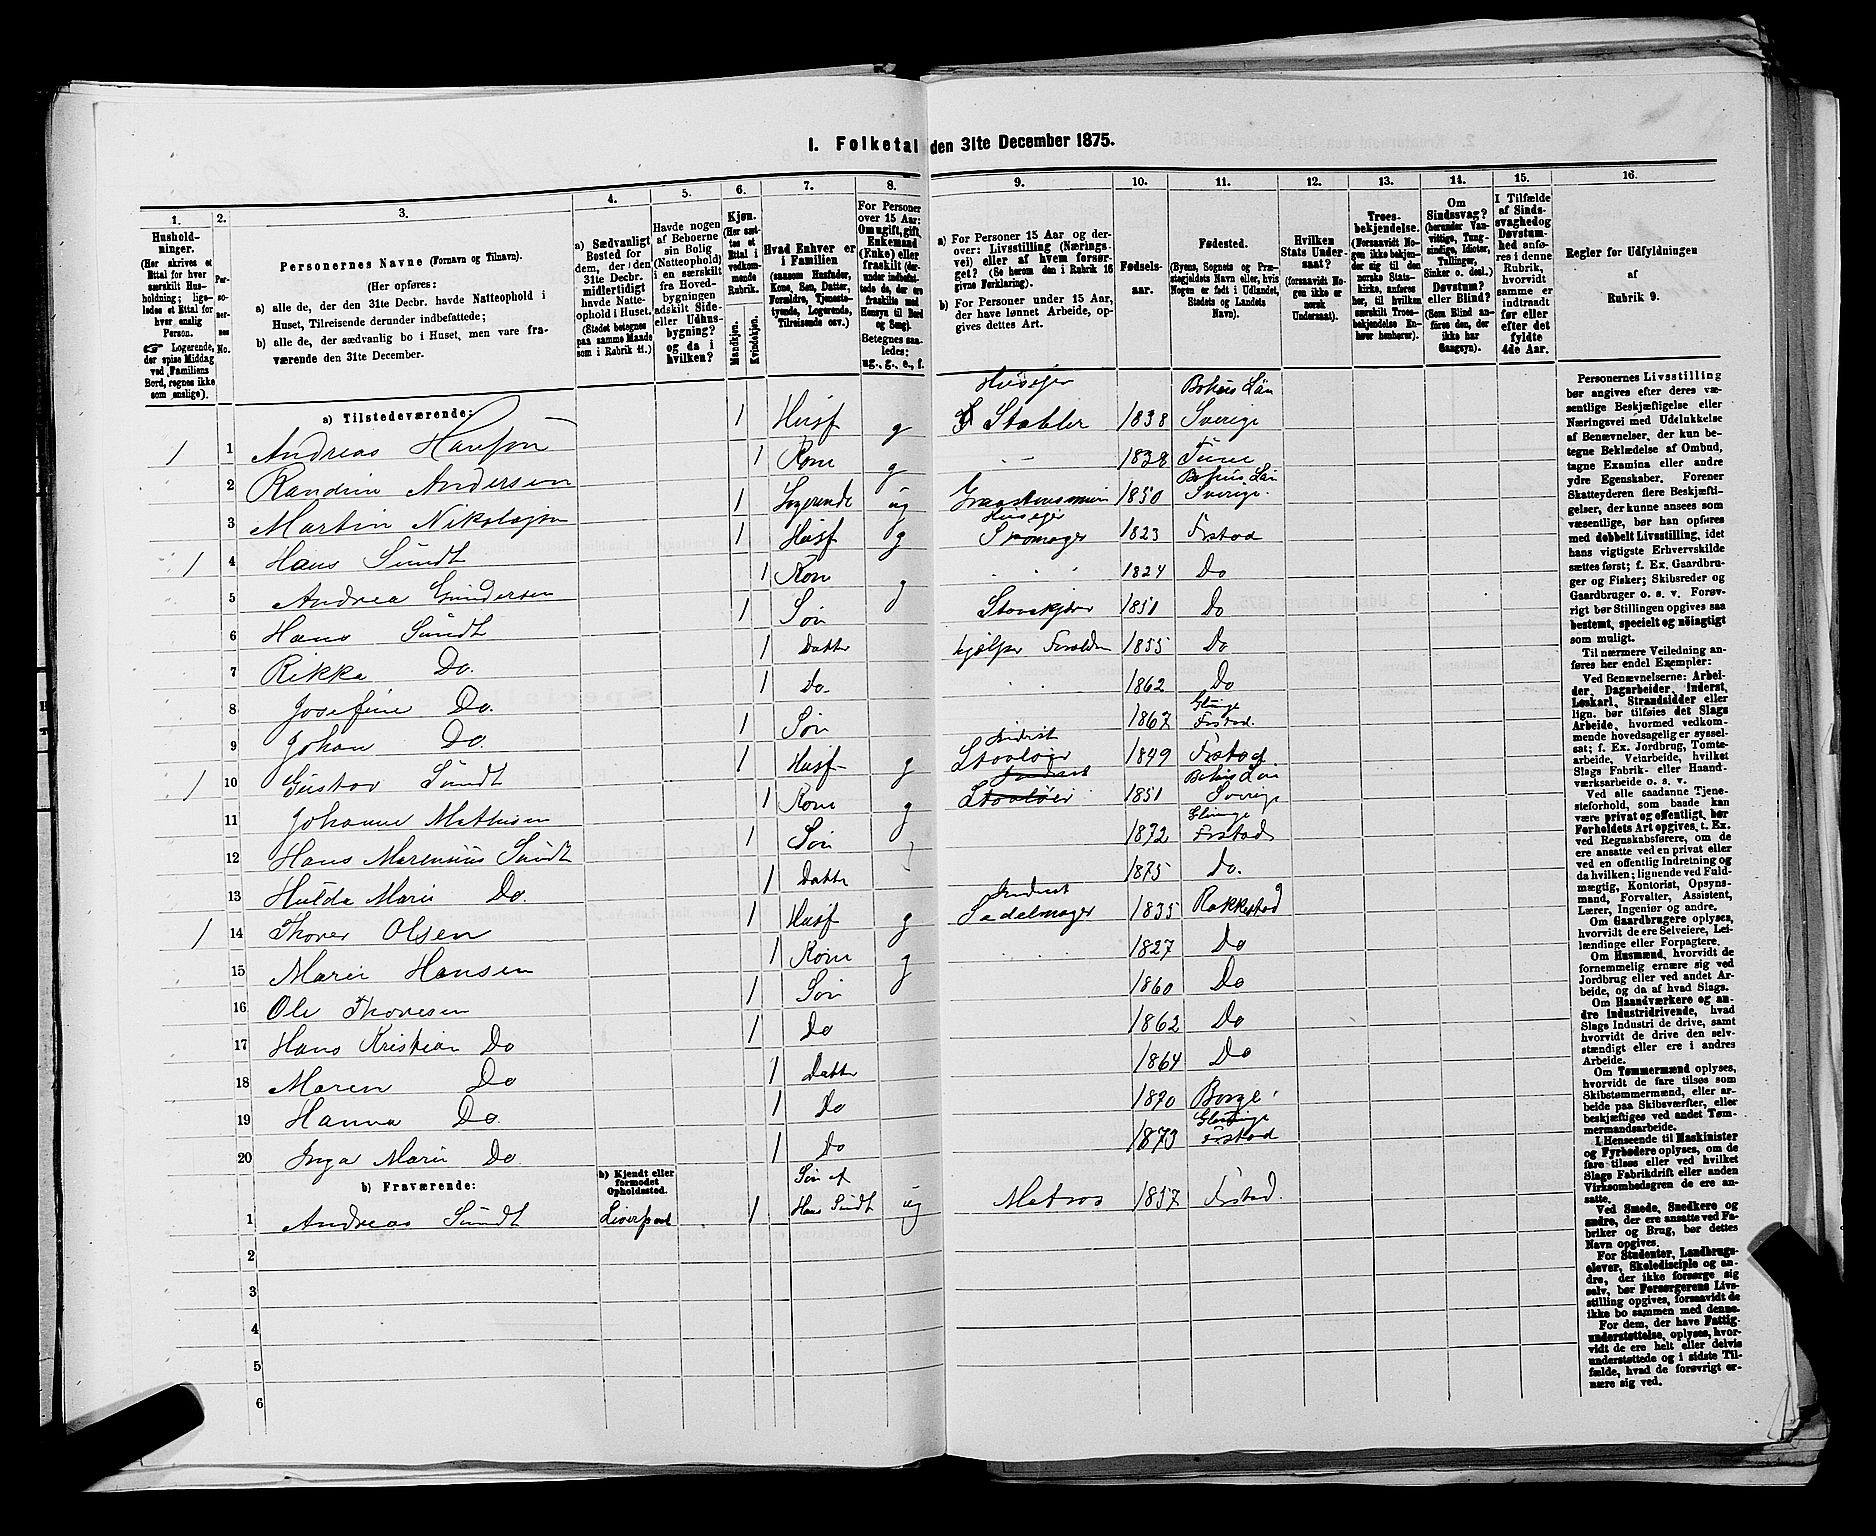 I. Folketal den 31te December 1875.
1. 2. 3. 4. 5. 6. 7. 8. 9. 10. 11. 12. 13. 14. 15. 16.
Hushold-
ninger.
(Her skrives et
Ettal for hver
særskilt Hus-
holdning; lige-
ledes et Ettal for
hver enslig
Person.
☞ Logerende,
der spise Middag
ved Familiens
Bord, regnes ikke
som enslige).
Per-
so-
ner-
nes
No.
Personernes Navne (Fornavn og Tilnavn).
(Her opføres:
a) alle de, der den 31te Decbr. havde Natteophold i
Huset, Tilreisende derunder indbefattede;
b) alle de, der sædvanlig bo i Huset, men vare fra-
værende den 31te December.
a) Sædvanligt
Bosted for
dem, der i den
31te Decbr.
midlertidigt
havde Natte-
ophold i Huset.
(Stedet betegnes
paa samme Maade
som i Rubrik 11.)
Havde nogen
af Beboerne
sin Bolig
(Natteophold)
i en særskilt
fra Hoved-
bygningen
adskilt Side-
eller Udhus-
bygning?
og da i
hvilken?
Kjøn.
(Her sæt-
tes et
Ettal i
vedkom-
mende
Rubrik.
Mandkjøn.
Kvindekjøn.
Hvad Enhver er
i Familien
(saasom Husfader,
Kone, Søn, Datter,
Forældre, Tjeneste-
tyende, Logerende,
Tilreisende osv.)
For Personer
over 15 Aar:
Om ugift, gift,
Enkemand
(Enke) eller
fraskilt (der-
under indbefat-
tede de, der ere
fraskilte med
Hensyn til Bord
og Seng).
Betegnes saa-
ledes:
ug., g., e., f.
a) For Personer 15 Aar og der-
over: Livsstilling (Nærings-
vei) eller af hvem forsør-
get? (Se herom den i Rubrik 16
givne Forklaring).
b) For Personer under 15 Aar,
der have lønnet Arbeide, op-
gives dettes Art.
Fødsels-
aar.
Fødested.
(Byens, Sognets og Præ-
stegjeldets Navn eller, hvis
Nogen er født i Udlandet,
Stedets og Landets
Navn).
Hvilken
Stats Under-
saat?
(forsaavidt No-
gen ikke er
norsk
Undersaat).
Troes-
bekjendelse.
(Forsaavidt No-
gen ikke bekjen-
der sig til den
norske Stats-
kirke, anføres
her, til hvilken
særskilt Troes-
bekjendelse En-
hver henhører).
Om
Sindssvag?
(herunder Van-
vittige, Tung-
sindige, Idioter,
Tullinger,
Sinker o. desl.)
Døvstum?
eller Blind?
(Som Blind an-
føres den, der
ikke har
Gangsyn).
I Tilfælde
af Sinds-
svaghed og
Døvstum-
hed anfø-
res i denne
Rubrik,
hvorvidt
samme er
indtraadt
før eller
efter det
fyldte
4de Aar.
Regler for Udfyldningen
af
Rubrik 9.
a) Tilstedeværende:
1 1 Andreas Hansen 1 Husf g Huseier Stabler 1838 Bohus Län Sverige
2 Randine Andersen 1 Kone g 1838 Tune
3 Martin Nikolajsen 1 Logerende ug 1850 Bohus Län Sverige.
1 4 Hans Sundt 1 Husf g Huseier 1823 Frstad
5 Andrea Gundersen 1 Kone g 1824 Do
6 Hans Sundt 1 Søn 1851 Do
7 Rikka Do. 1 Datter hjælper 1855 Do
8 Josefine Do. 1 Do. 1862 Do
9 Johan Do. 1 Søn 1867 Glenge Frstad.
1 10 Gustav Sundt 1 Husf g Inderst 1849 Frstad
11 Johanne Mathisen 1 Kone g 1851 Bohus Län Sverige
12 Hans Marensius Sundt 1 Søn 1872 Glenge Frstad
13 Hulda Marie Do 1 Datter 1875 Do.
1 14 Thorer Olsen 1 Husf g Inderst Sadelmager 1835 Rakkestad
15 Maren Hansen 1 Kone g 1827 Do
16 Ole Thoresen 1 Søn 1860 Do
17 Hans Kristian Do 1 Do 1862 Do
18 Maren Do 1 Datter 1864 Do
19 Hanna Do 1 Do 1870 Borge
20 Inga Marie Do 1 Do 1873 Glenge Frstad
b) Fraværende:
b) Kjendt eller
formodet
Opholdssted.
1 Andreas Sundt Liverpool 1 Søn af Hans Sundt ug Matros 1857 Frstad.
2
3
4
5
6
Personernes Livsstilling
bør angives efter deres væ-
sentlige Beskjæftigelse eller
Næringsvei med Udelukkelse
af Benævnelser, der kun be-
tegne Beklædelse af Ombud,
tagne Examina eller andre
ydre Egenskaber. Forener
Skatteyderen flere Beskjæfti-
gelser, der kunne ansees som
væsentlige, bør han opføres
med dobbelt Livsstilling, idet
hans vigtigste Erhvervskilde
sættes først; f. Ex. Gaardbru-
ger og Fisker; Skibsreder og
Gaardbruger o. s. v. Forøv-
rigt bør Stillingen opgives saa
bestemt, specielt og nöiagtigt
som muligt.
Til nærmere Veiledning an-
føres her endel Exempler:
Ved Benævnelserne: Arbei-
der, Dagarbeider, Inderst,
Løskarl, Strandsidder eller
lign. bør tilføies det Slags
Arbeide, hvormed vedkom-
mende hovedsagelig er syssel-
sat; f. Ex. Jordbrug, Tomte-
arbeide, Veiarbeide, hvilket
Slags Fabrik- eller Haand-
værksarbeide o. s. v.
Ved alle saadanne Tjene-
steforhold, som baade kan
være privat og offentligt, bør
Forholdets Art opgives, t. Ex.
ved Regnskabsførere, om de
ere ansatte ved en privat eller
ved en offentlig Indretning og
da hvilken; lignende ved Fuld-
mægtig, Kontorist, Opsyns-
mand, Forvalter, Assistent,
Lærer, Ingeniør og andre.
Om Gaardbrugere oplyses,
hvorvidt de ere Selveiere, Lei-
lændinge eller Forpagtere.
Om Husmænd, hvorvidt de
fornemmelig ernære sig ved
Jordbrug eller ved andet Ar-
beide, og da af hvad Slags.
Om Haandværkere og an-
dre Industridrivende, hvad
Slags Industri de drive, samt
hvorvidt de drive den selv-
stændigt eller ere i andres
Arbeide.
Om Tømmermænd oplyses,
hvorvidt de fare tilsøs som
Skibstømmermænd, eller ar-
beide paa Skibsværfter, eller
beskjæftiges ved andet Tøm-
mermandsarbeide.
I Henseende til Maskinister
og Fyrbødere oplyses, om de
fare tilsøs eller ved hvilket
Slags Fabrikdrift eller anden
Virksomhedsgren de ere an-
satte.
Ved Smede, Snedkere og
andre, der ere ansatte ved Fa-
briker og Brug, bør dettes
Navn opgives.
For Studenter, Landbrugs-
elever, Skoledisciple og an-
dre, der ikke forsørge sig
selv, bør Forsørgerens Livs-
stilling opgives, forsaavidt de
ikke bo sammen med denne.
For dem, der have Fattig-
understøttelse, oplyses, hvor-
vidt de ere helt eller delvis
understøttede og i sidste Til-
fælde, hvad de forøvrigt er-
nære sig ved.